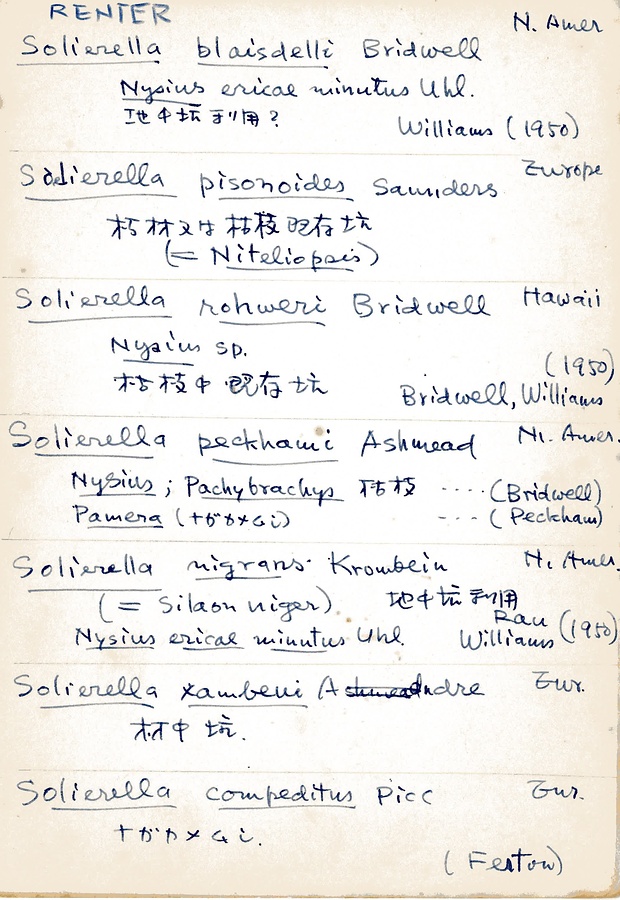 RENTER
N. Amer
Solierella blaisdelli Bridwell
Nysius ericae minutus Uhl.
地中坑利用?
Williams (1950)
Europe
Solierella pisonoides Saunders
朽材又は枯枝既存坑
(= Niteliopsis)
Solierella rohweri Bridwell Hawaii
Nysius sp.
(1950)
枯枝中既存坑
Bridwell, Williams
Solierella peckhami Ashmead N. Amer.
Nysius; Pachybrachys 枯枝 ···· (Bridwell)
Pamera (ナガカメムシ) --- (Peckham)
Solierella nigrans Krombein N. Amer.
(= Silaon niger) 地中坑利用
Rau
Nysius ericae minutus Uhl. Williams (1950)
Solierella xambeui Ashmead Andre Eur.
材中坑.
Solierella compeditus Picc Eur.
ナガカメムシ.
(Ferton)